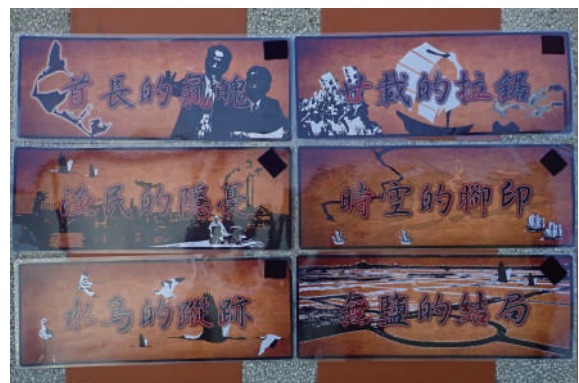 首長的氣魄
廿載的拉鋸
漁民的隱憂
時空的腳印
水鳥的蹤跡
無鹽的結局